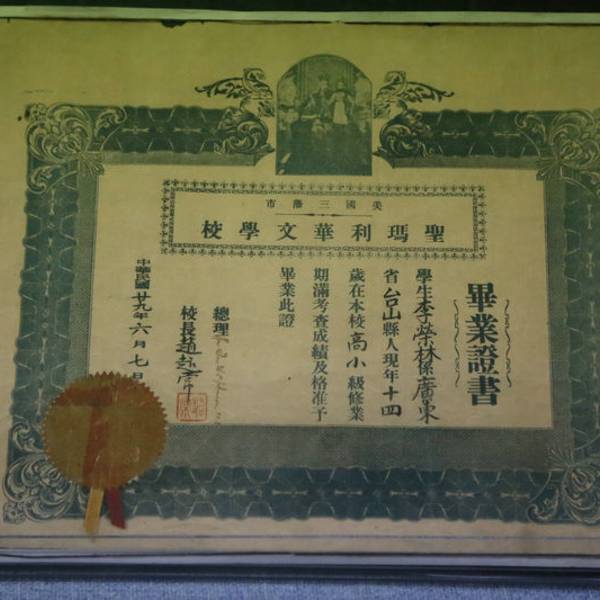 美國三藩市
聖瑪利華文學校
畢業證書
學生李榮林係廣東
省台山縣人現年十四
歲在本校高小級修業
期滿考查成績及格准予
畢業此證
總理
校長趙
中華民國廿九年六月七日